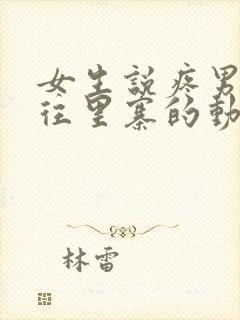 女生說疼男
往里寨的動
林雷